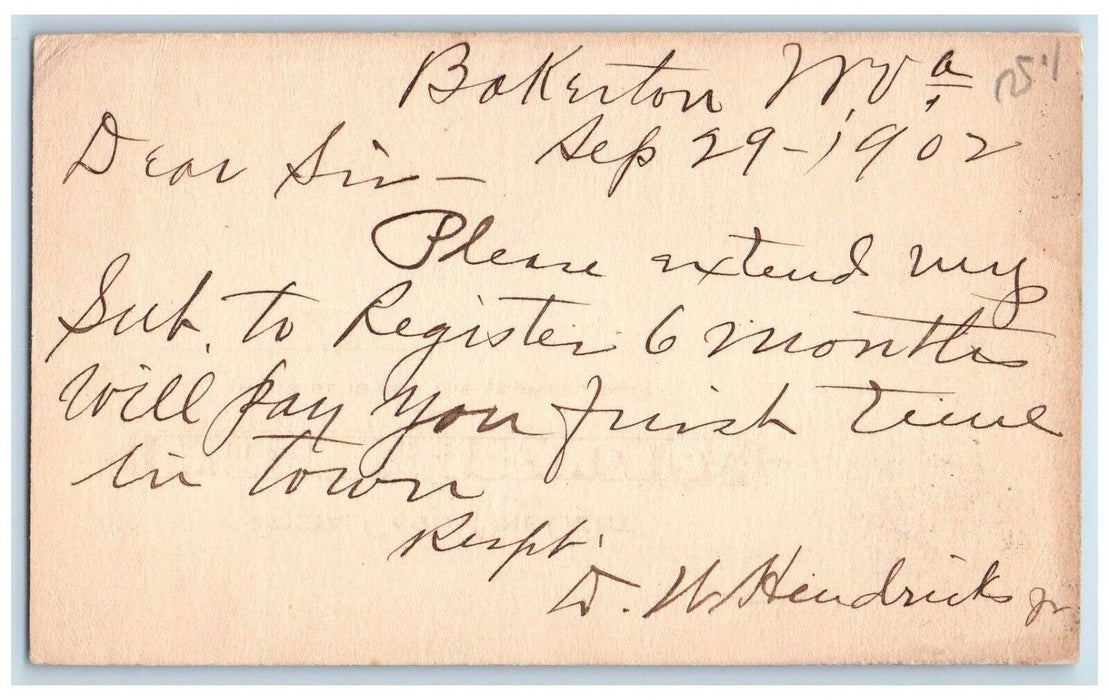 Bakerton W.Va
Sep 29-1902
Dear Sir-
Please extend my
Sub. to Register 6 months
Will pay you first time
in town
Respt.
D. W. Hendricks jr